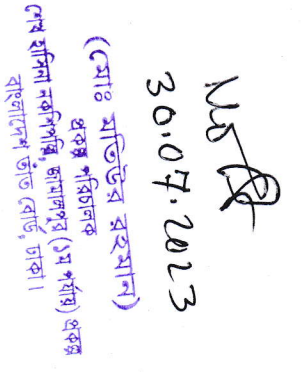 30.07.2023
(মোঃ মতিউর রহমান)
প্রকল্প পরিচালক
শেখ হাসিনা নকশিপল্লি, জামালপুর (১ম পর্যায়) প্রকল্প
বাংলাদেশ তাঁত বোর্ড, ঢাকা।